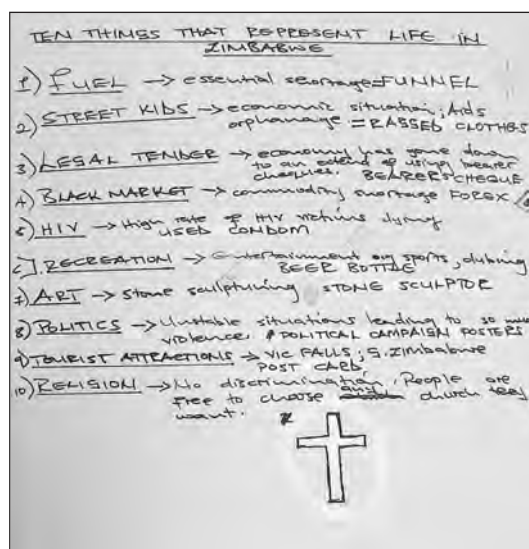 TEN THINGS THAT REPRESENT LIFE IN
ZIMBABWE
1) FUEL → essential shortage = FUNNEL
2) STREET KIDS → economic situation; Aids
orphanage = RAGGED CLOTHES
3) LEGAL TENDER → economy has gone down
to an extend of using bearer
cheques. BEARER'S CHEQUE
4) BLACK MARKET → commodity shortage FOREX
5) HIV → High rate of HIV victims dying
USED CONDOM
6) RECREATION → Entertainment eg sports, clubing
BEER BOTTLE
7) ART → Stone sculpturing STONE SCULPTOR
8) POLITICS → Unstable situations leading to so much
violence. POLITICAL CAMPAIGN POSTERS
9) TOURIST ATTRACTIONS → VIC FALLS; G. Zimbabwe
POST CARD
10) RELIGION → No discrimination. People are
free to choose any church they
want.